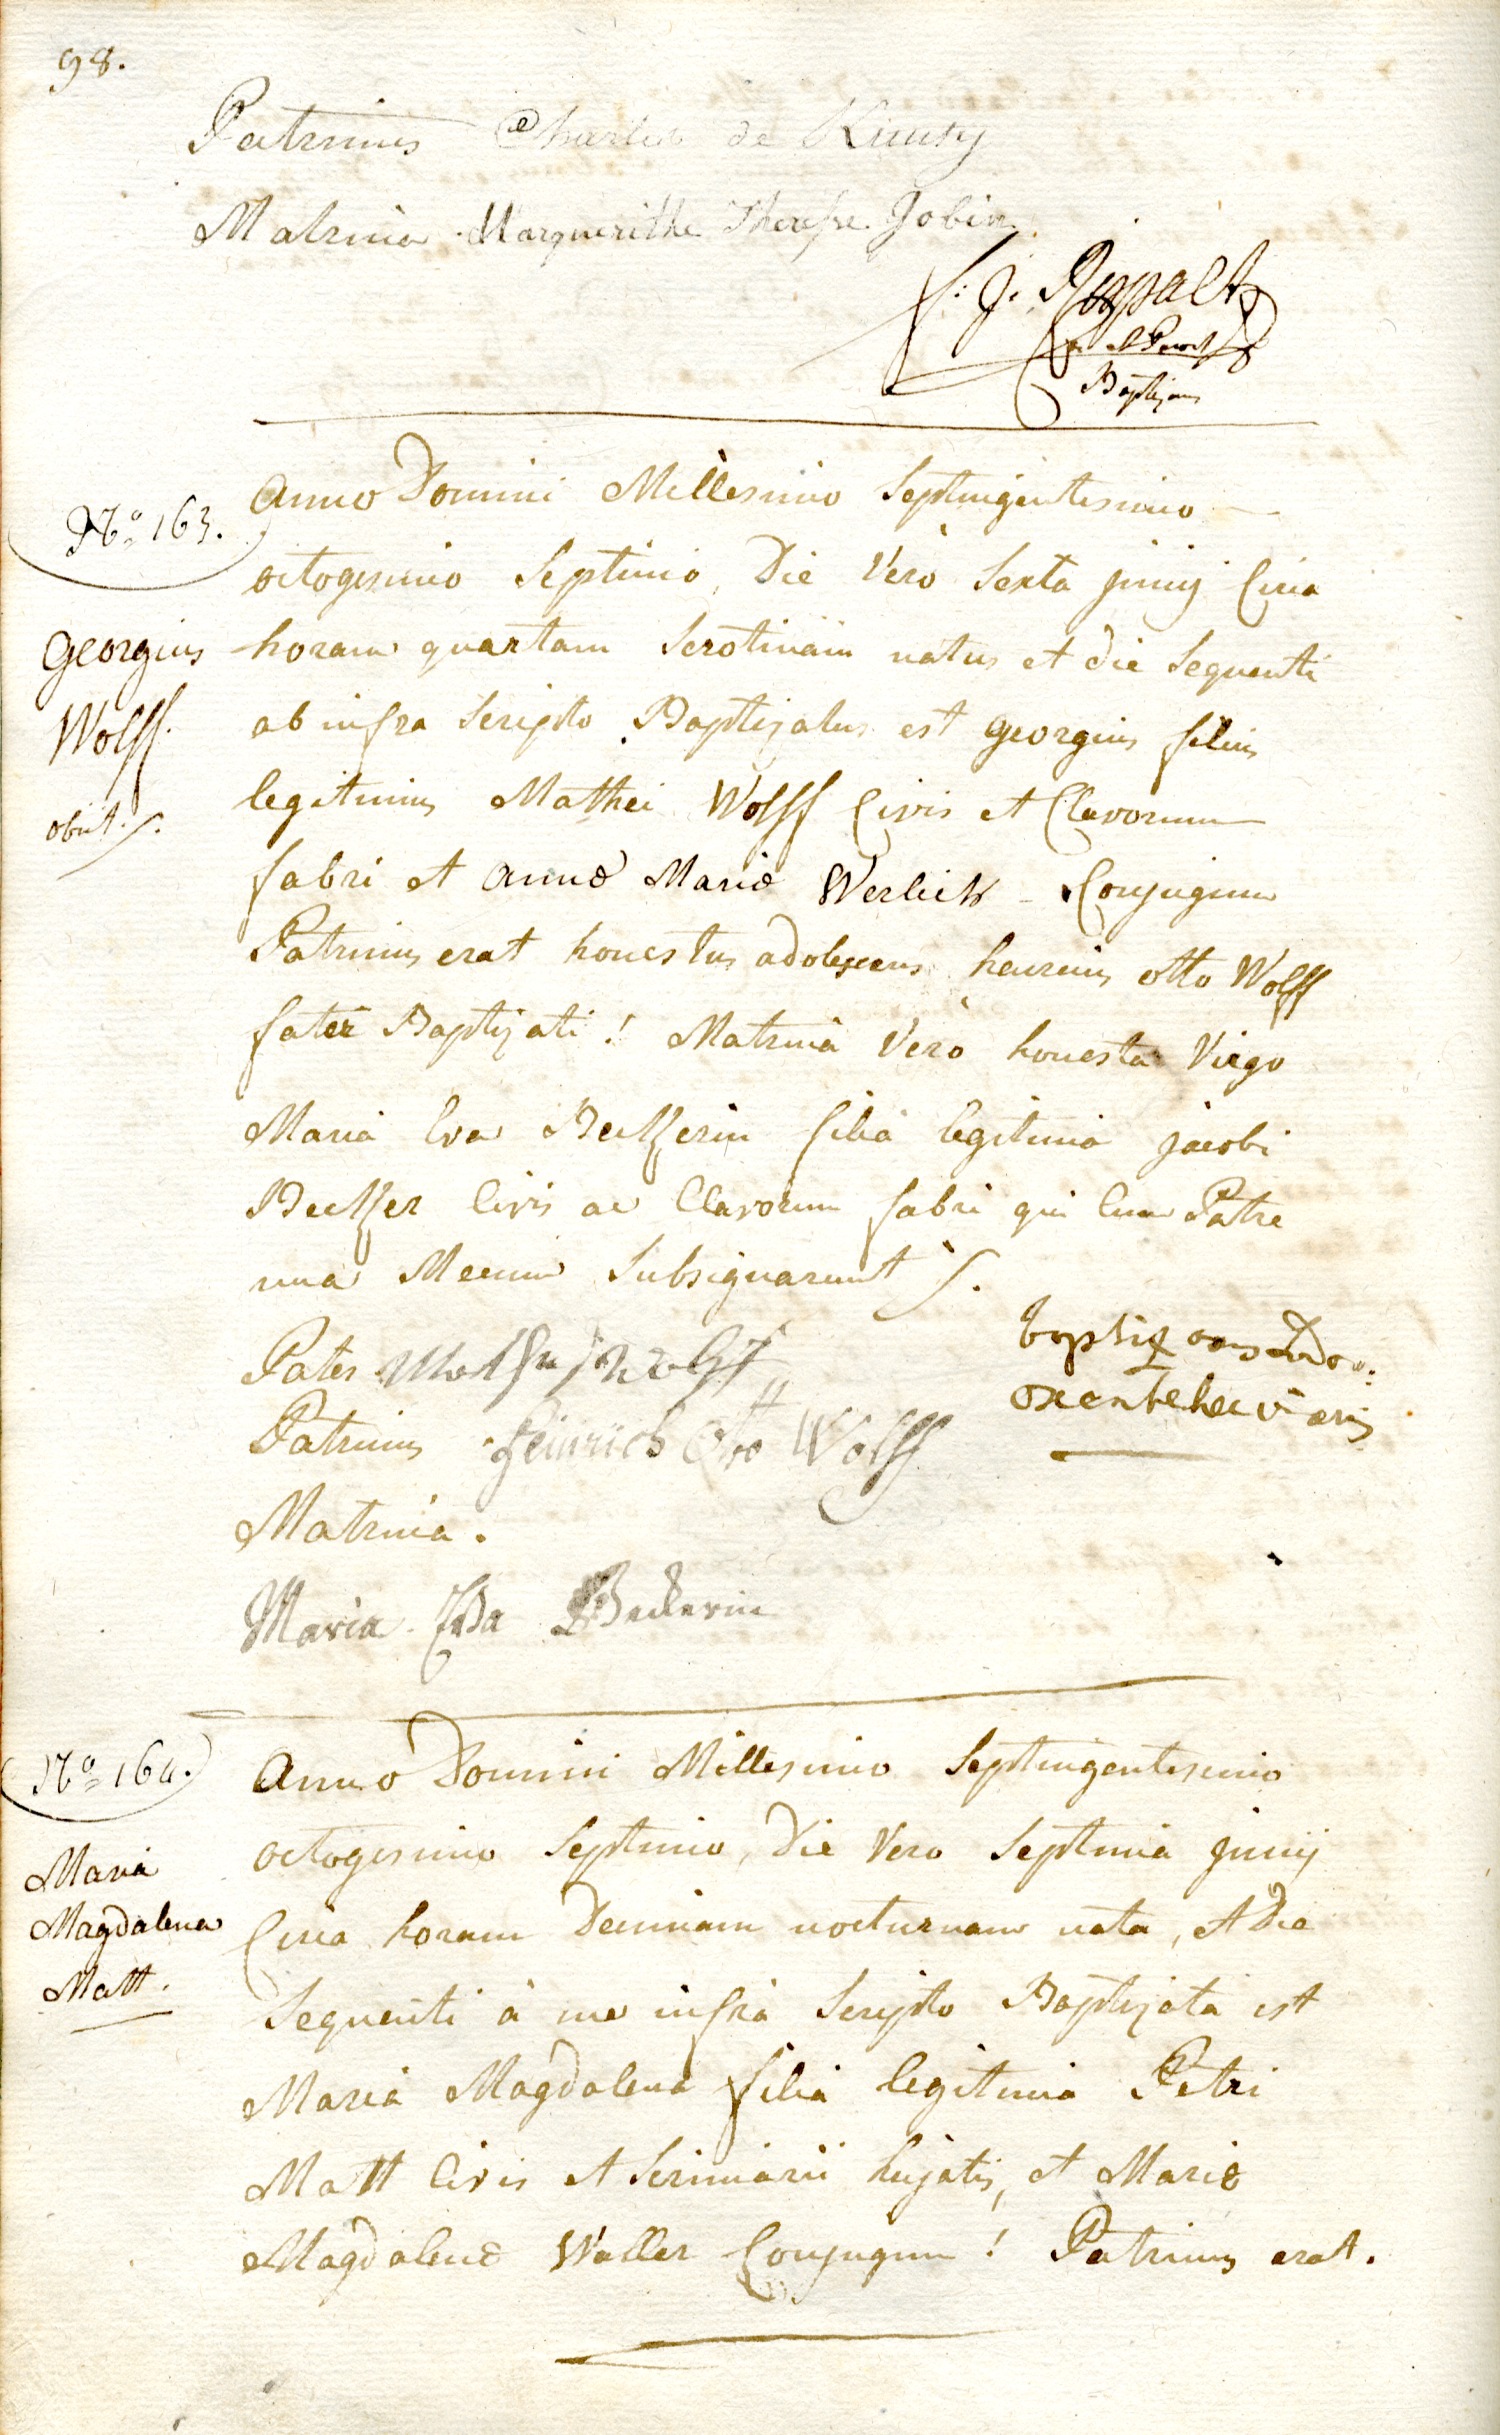 98.
Patrinus Charles de
Matrina Marguerithe Therese Jobin
f: J: Ruppalt
Baptizans
Nº 163.
Georgius
Wolff.
obiit.
Anno Domini Millesimo Septingentesimo
octogesimo Septimo, Die Verò Sexta junij Circa
horam quartam Serotinam natus et die Sequenti
ab infra Scripto Baptizatus est Georgius filius
legitimus Mathei Wolff Civis et Clavorum
fabri et Annæ Mariæ Werlich Conjugum
Patrinus erat honestus adolescens henricus otto Wolff
fater Baptizati! Matrina Verò honesta Virgo
Maria Eva Beckerin filia legitima jacobi
Becker Civis ac Clavorum fabri qui Cum Patre
una Mecum Subsignarunt
Pater
Patrinus Heinrich Otto Wolff
Matrina.
Maria Eva Beckerin
Nº 164.
Maria
Magdalena
Matt.
Anno Domini Millesimo Septingentesimo
octogesimo Septimo, Die Vero Septima junij
Circa horam Decimam nocturnam nata, et Die
Sequenti à me infrà Scripto Baptizata est
Maria Magdalena filia legitima Petri
Matt Civis et Scriniarii hujatis, et Mariæ
Magdalenæ Waller Conjugum! Patrinus erat.